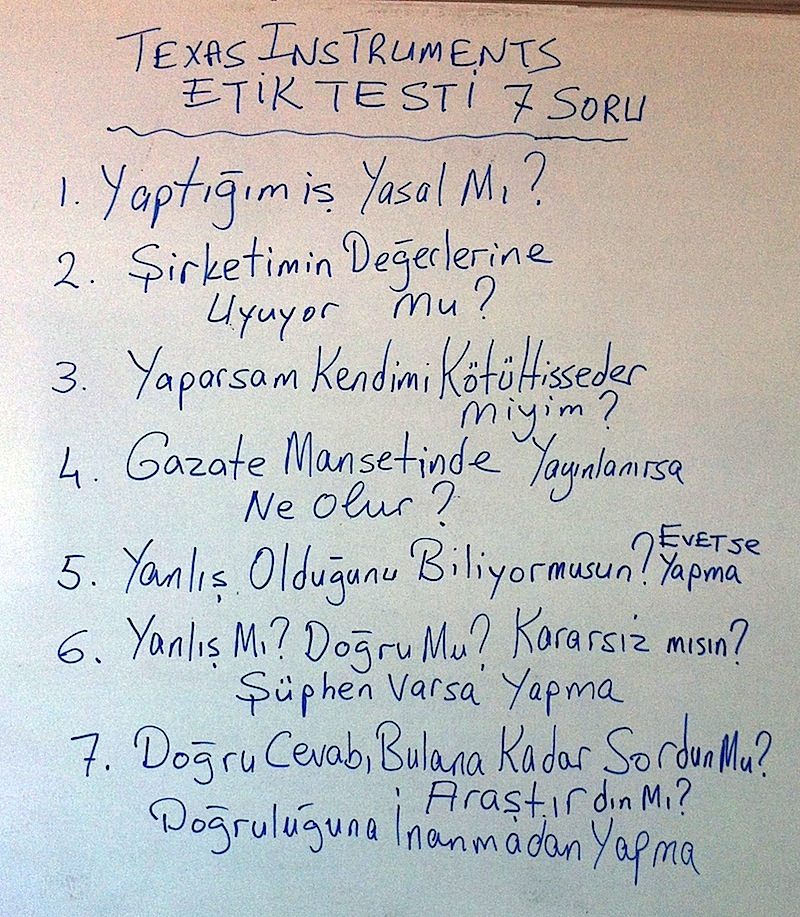 TEXAS INSTRUMENTS
ETİK TESTİ 7 SORU
1. Yaptığım iş Yasal Mı?
2. Şirketimin Değerlerine
Uyuyor mu?
3. Yaparsam Kendimi Kötü Hisseder
miyim?
4. Gazate Mansetinde Yayınlanırsa
Ne Olur?
5. Yanlış Olduğunu Biliyormusun? EVETse
Yapma
6. Yanlış Mı? Doğru Mu? Kararsız mısın?
Şüphen Varsa Yapma
7. Doğru Cevabı Bulana Kadar Sordun Mu?
Araştırdın Mı?
Doğruluğuna İnanmadan Yapma